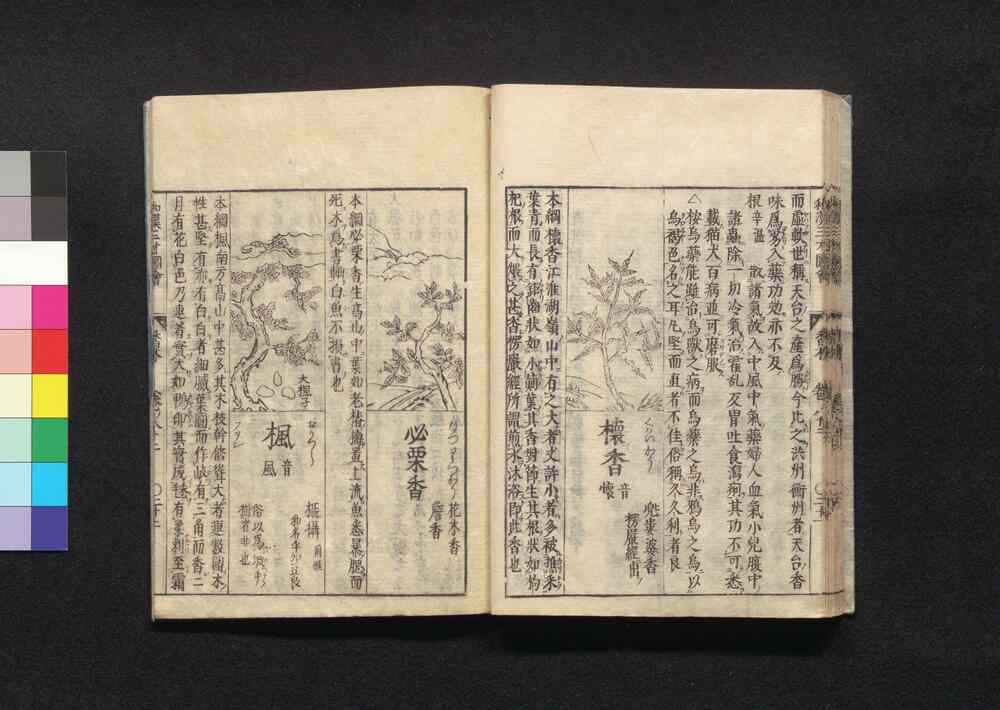 而虛軟世稱天台之產爲勝今比之洪州衡州者天台香
味爲劣入藥功効亦不及
根辛溫 散諸氣故入中風中氣藥婦人血氣小兒腹中
諸蟲除一切冷氣治霍亂反胃吐食瀉痢其功不可悉
載猫犬百病並可磨服
△按烏藥能雖治烏獸之病而烏藥之烏非鴉烏之烏以
烏色名之耳凡堅而直者不佳俗稱久久利者良
櫰香
音懷
くはいかう
兜婁婆香
楞嚴經出
本綱櫰香江淮湖嶺山中有之大者丈許小者多被樵采
葉青而長有鋸齒狀如小薊葉其香對節生其根狀如枸
杞根而大煨之甚香楞嚴經所謂煎水沐浴即此香也
必栗香
ひつりつかう
花木香
詹香
本綱必栗香生高山中葉如老椿搗置上流魚悉暴腮而
死木爲書軸白魚不損書也
楓
音風
大楓子
欇欇
本綱楓南方高山中甚多其木枝幹修聳大者連數圍木
性甚堅有赤有白白者細膩葉圓而作岐有三角而香二
月有花白色乃連着實大如鴨卵其實成毬有柔刺至霜
和漢三才圖會